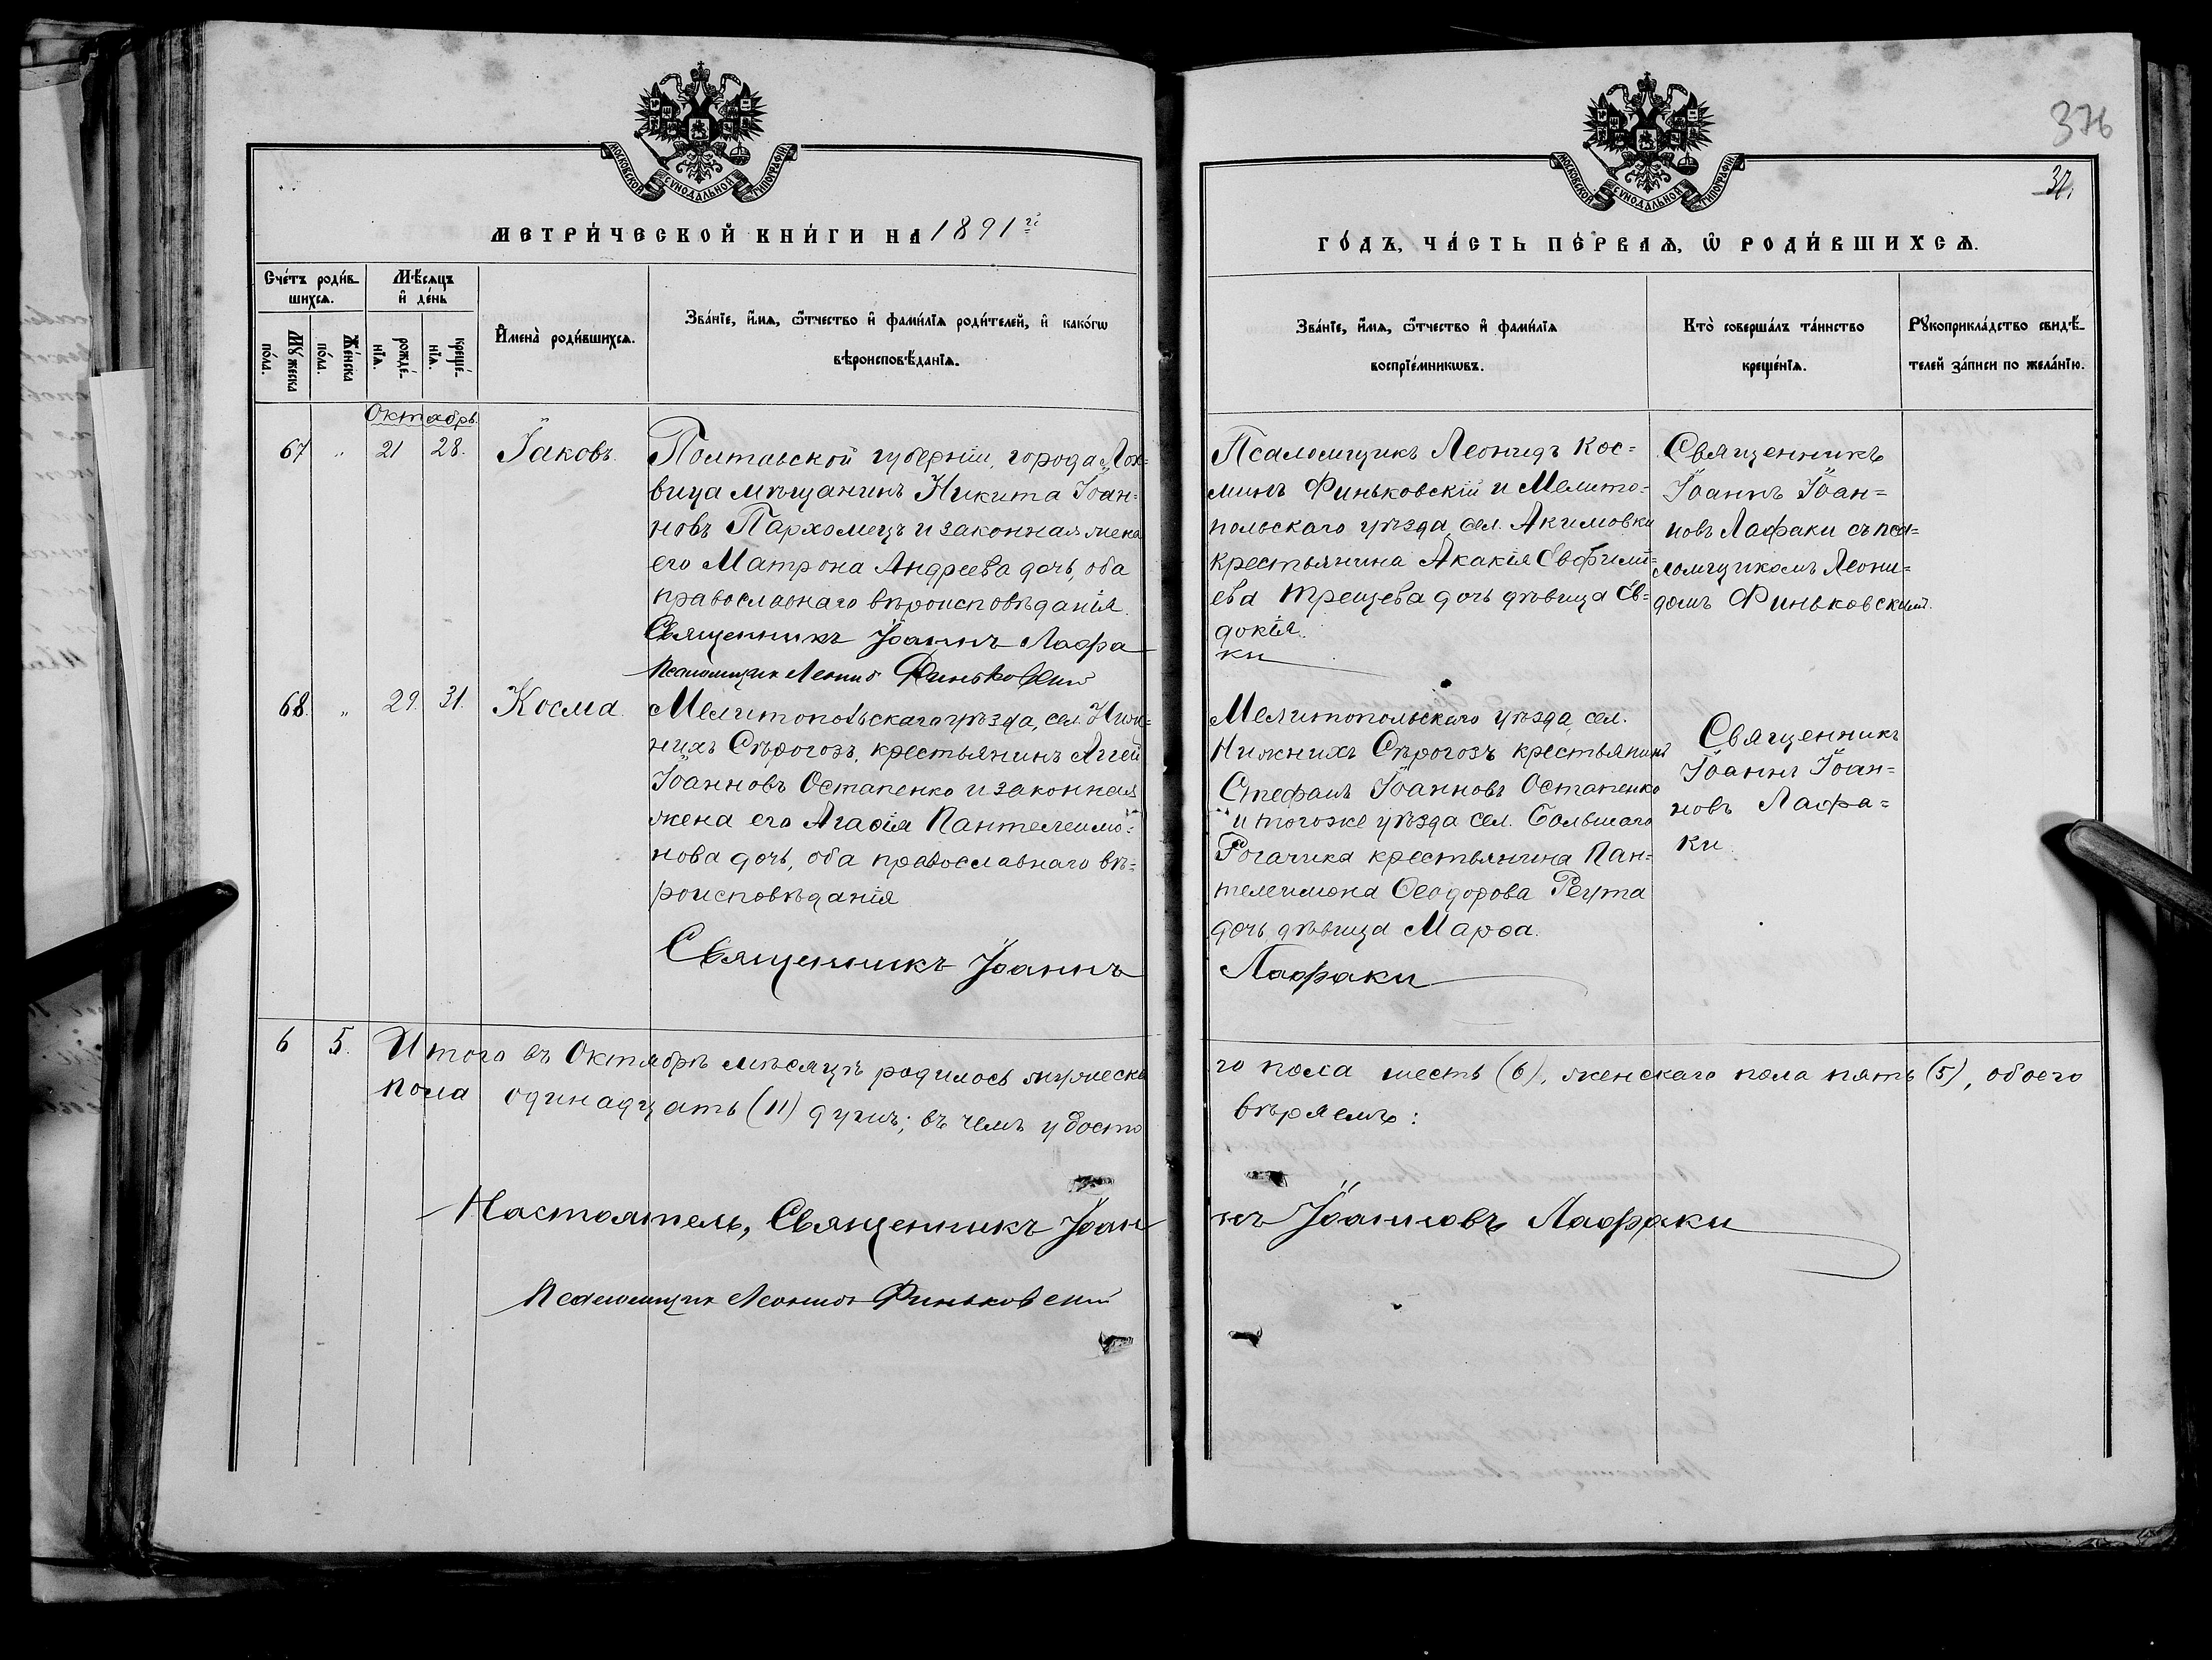 МОСКОВСКОЙ СУНОДАЛЬНОЙ ТИПОГРАФІИ
МЕТРИ́ЧЕСКОЙ КНИ́ГИ НА 1891й
Сче́тъ роди́в-
шихсѧ.
Мѣ́сѧцъ
и҆ де́нь
И҆мена̀ роди́вшихсѧ.
Зва́нїе, и҆́мѧ, ѻ҆́тчество и҆ фами́лїѧ роди́телей, и҆ како́гѡ
вѣроисповѣ́данїѧ.
Мꙋ́жеска
по́ла.
Же́нска
по́ла.
рожде́-
нїѧ.
креще́-
нїѧ.
Октябрь
67 " 21 28. Іаковъ.
Полтавской губерніи, города Лох-
вица мѣщанинъ Никита Іоан-
новъ Пархомецъ и законная жена
его Матрона Андреева дочь, оба
православнаго вѣроисповѣданія.
Священникъ Іоаннъ Лафа
Псаломщик Леонид Финьковский
68. " 29. 31. Косма.
Мелитопольскаго уѣзда, сел. Ниж-
нихъ Сѣрогозъ, крестьянинъ Аггей
Іоанновъ Остапенко и законная
жена его Агаѳія Пантелеимо-
нова дочь, оба православнаго вѣ-
роисповѣданія
Священникъ Іоаннъ
6 5. Итого въ Октябрѣ мѣсяцѣ родилось мужеска
пола одинадцать (11) душъ; въ чемъ удосто
Настоятель, Священникъ Іоан
Псаломщик Леонид Финьковский
376
37.
МОСКОВСКОЙ СУНОДАЛЬНОЙ ТИПОГРАФІИ
ГО́ДЪ, ЧА́СТЬ ПЕ́РВАѦ, Ѽ РОДИ́ВШИХСѦ.
Зва́нїе, и҆́мѧ, ѻ҆́тчество и҆ фами́лїѧ
воспрїе́мникѡвъ.
Кто̀ соверша́лъ та́инство
креще́нїѧ.
Рꙋкоприкла́дство свидѣ́-
телей за́писи по жела́нїю.
Псаломщикъ Леонидъ Кос-
минъ Финьковскій и Мелито-
польскаго уѣзда, сел. Акимовки
крестьянина Акакія Евфимі-
ева Трещева дочь дѣвица Ев-
докія.
ки
Священникъ
Іоаннъ Іоан=
новъ Лафаки съ пса=
ломщикомъ Леони=
домъ Финьковскимъ.
Мелитопольскаго уѣзда, сел.
Нижнихъ Сѣрогозъ крестьянинъ
Стефанъ Іоанновъ Остапенко
и тогоже уѣзда сел. Большаго
Рогачика крестьянина Пан=
телеимона Ѳеодорова Реута
дочь дѣвица Марѳа.
Лафаки
Священникъ
Іоаннъ Іоан=
новъ Лафа=
ки
го пола шесть (6), женскаго пола пять (5), обоего
вѣряемъ:
нъ Іоанновъ Лафаки